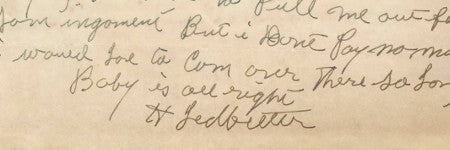 Pull me out fo
Som ingoment But i Dont Pay no m
i woued Loe to Com over There So Lon
Baby is all right
H Ledbetter